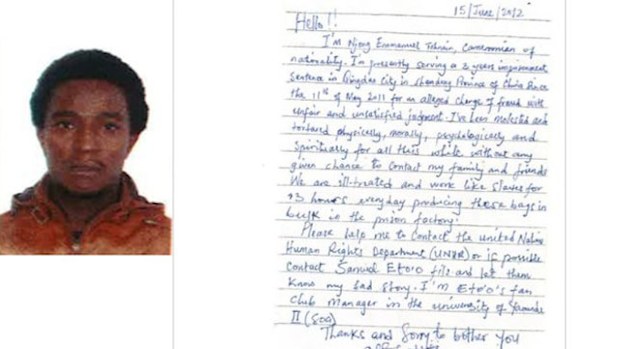 15/June/2012
Hello!!
I'm Njong Emmanuel Tohnain, Cameroonian of
nationality. I'm presently serving a 3 years imprisonment
Sentence in Qingdao city in shandong Province of China Since
the 11th of May 2011 for an alleged charge of fraud with
unfair and unsatisfied judgment. I've been molested and
tortured physically, morally, psychologically and
Spiritually for all this while without any
given chance to contact my family and friends
We are ill-treated and work like slaves for
13 hours everyday producing these bags in
bulk in the prison factory.
Please help me to contact the united Nations
Human Rights Department (UNHR) or if possible
contact Samuel Eto'o fils and let them
know my sad story. I'm Eto'o's fan
Club Manager in the university of Yaounde
II (Soa)
Thanks and Sorry to bother you